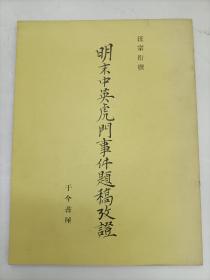 汪宗衍撰
明末中英虎門事件題稿攷證
于今書屋